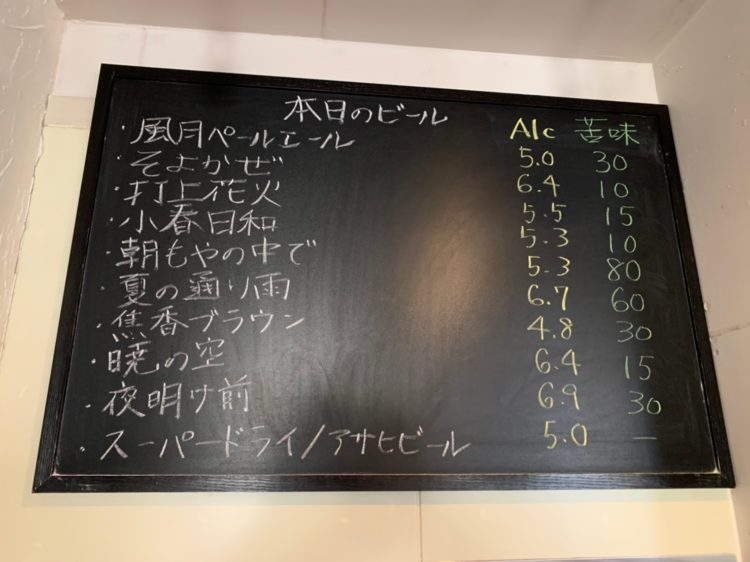 本日のビール Alc 苦味
・風月ペールエール 5.0 30
・そよかぜ 6.4 10
・打上花火 5.5 15
・小春日和 5.3 10
・朝もやの中で 5.3 80
・夏の通り雨 6.7 60
・焦香ブラウン 4.8 30
・暁の空 6.4 15
・夜明け前 6.9 30
・スーパードライ/アサヒビール 5.0 —